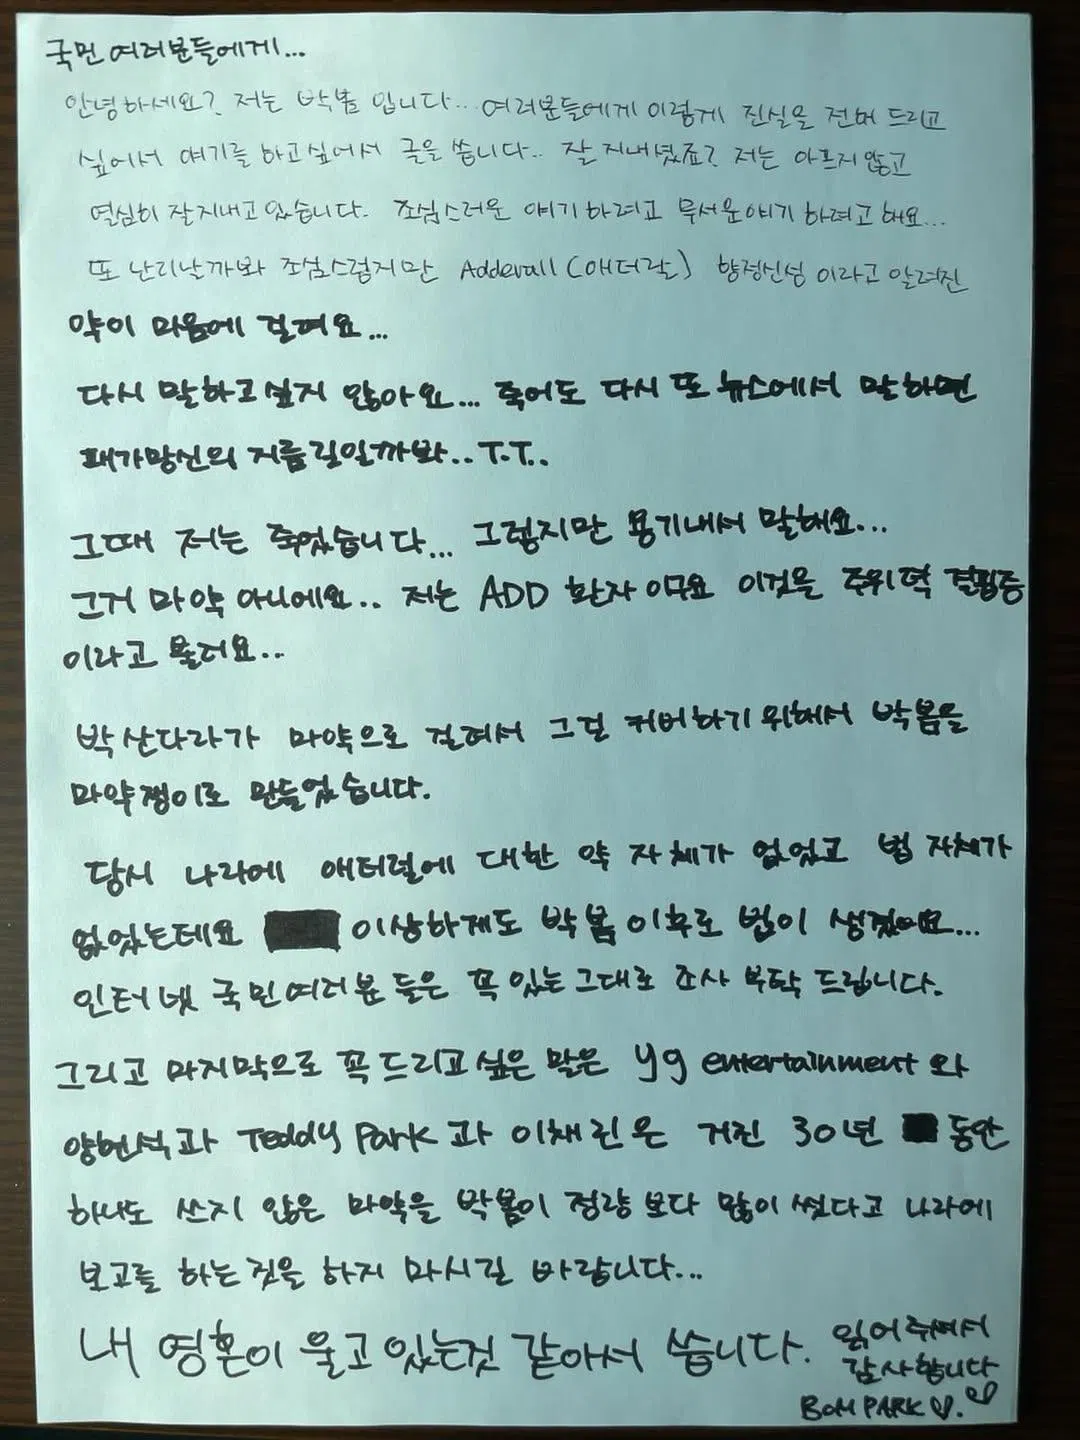 국민 여러분들에게...
안녕하세요? 저는 박봄 입니다... 여러분들에게 이렇게 진실을 전해 드리고
싶어서 얘기를 하고싶어서 글을 씁니다.. 잘 지내셨죠? 저는 아프지 않고
열심히 잘지내고 있습니다. 조심스러운 얘기 하려고 무서운얘기 하려고 해요...
또 난리날까봐 조심스럽지만 Adderall (애더랄) 향정신성 이라고 알려진
약이 마음에 걸려요...
다시 말하고싶지 않아요... 죽어도 다시 또 뉴스에서 말하면
패가망신의 지름길일까봐.. T.T..
그때 저는 죽었습니다... 그렇지만 용기내서 말해요...
그거 마약 아니에요.. 저는 ADD 환자 이구요 이것을 주위력 결핍증
이라고 불러요...
박산다라가 마약으로 걸려서 그걸 커버하기 위해서 박봄을
마약쟁이로 만들었습니다.
당시 나라에 애더럴에 대한 약 자체가 없었고 법 자체가
없었는데요 이상하게도 박봄 이후로 법이 생겼어요...
인터넷 국민여러분 들은 꼭 있는그대로 조사 부탁 드립니다.
그리고 마지막으로 꼭 드리고싶은 말은 yg entertainment 와
양현석과 Teddy Park 과 이채린은 거진 30년 동안
하나도 쓰지 않은 마약을 박봄이 정량 보다 많이 썼다고 나라에
보고를 하는것을 하지 마시길 바랍니다...
내 영혼이 울고 있는것 같아서 씁니다. 읽어주셔서
감사합니다
BOM PARK ♡. ♡